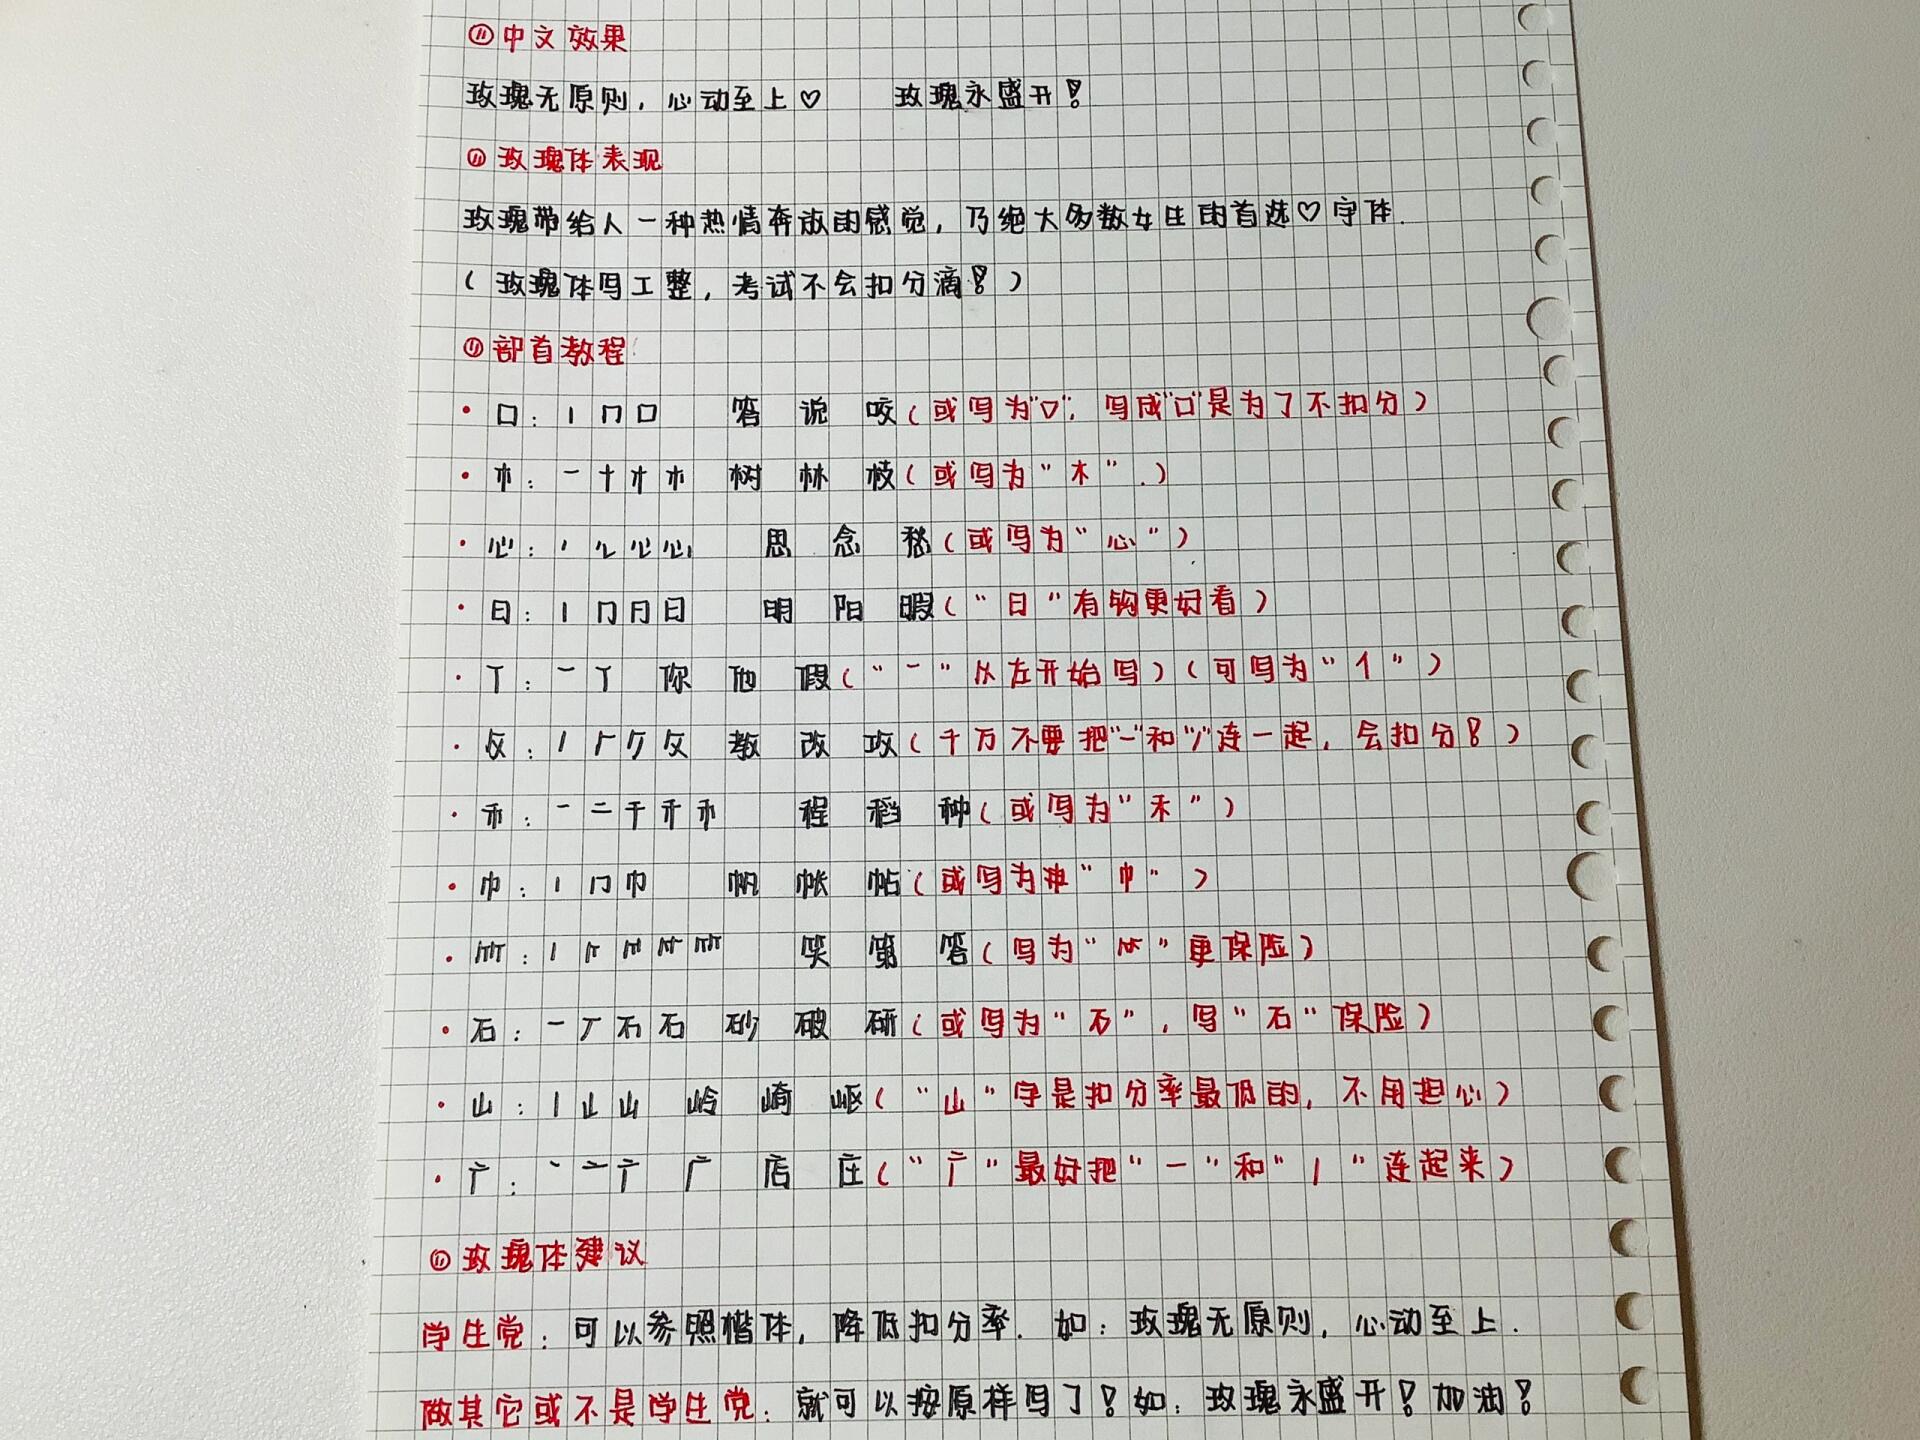 ⑪中文效果
玫瑰无原则，心动至上♡ 玫瑰永盛开！
⑪玫瑰体表现
玫瑰带给人一种热情奔放的感觉，乃绝大多数女生的首选♡字体.
（玫瑰体写工整，考试不会扣分滴！）
⑪部首教程
·口：丨冂口 答 说 咬（或写为"▽"，写成"口"是为了不扣分）
·木：一十才木 树 林 枝（或写为"木".）
·心： 思 念 愁（或写为"心"）
·日：丨冂月日 明 阳 暇（"日"有钩更好看）
·丅：一丅 你 他 假（"一"从左开始写）（可写为"亻"）
·攵： 教 改 攻（千万不要把"一"和"丿"连一起，会扣分！）
·禾：一二千禾禾 程 稻 种（或写为"禾"）
·巾：丨冂巾 帆 帐 帖（或写为"巾"）
· 笑 第 答（写为" "更保险）
·石：一丆石石 砂 破 研（或写为"石"，写"石"保险）
·山：丨山山 岭 崎 岖（"山"字是扣分率最低的，不用担心）
·广：丶亠广 广 店 庄（"广"最好把"一"和"丨"连起来）
⑪玫瑰体建议
学生党：可以参照楷体，降低扣分率. 如：玫瑰无原则，心动至上.
做其它或不是学生党：就可以按原样写了！如：玫瑰永盛开！加油！